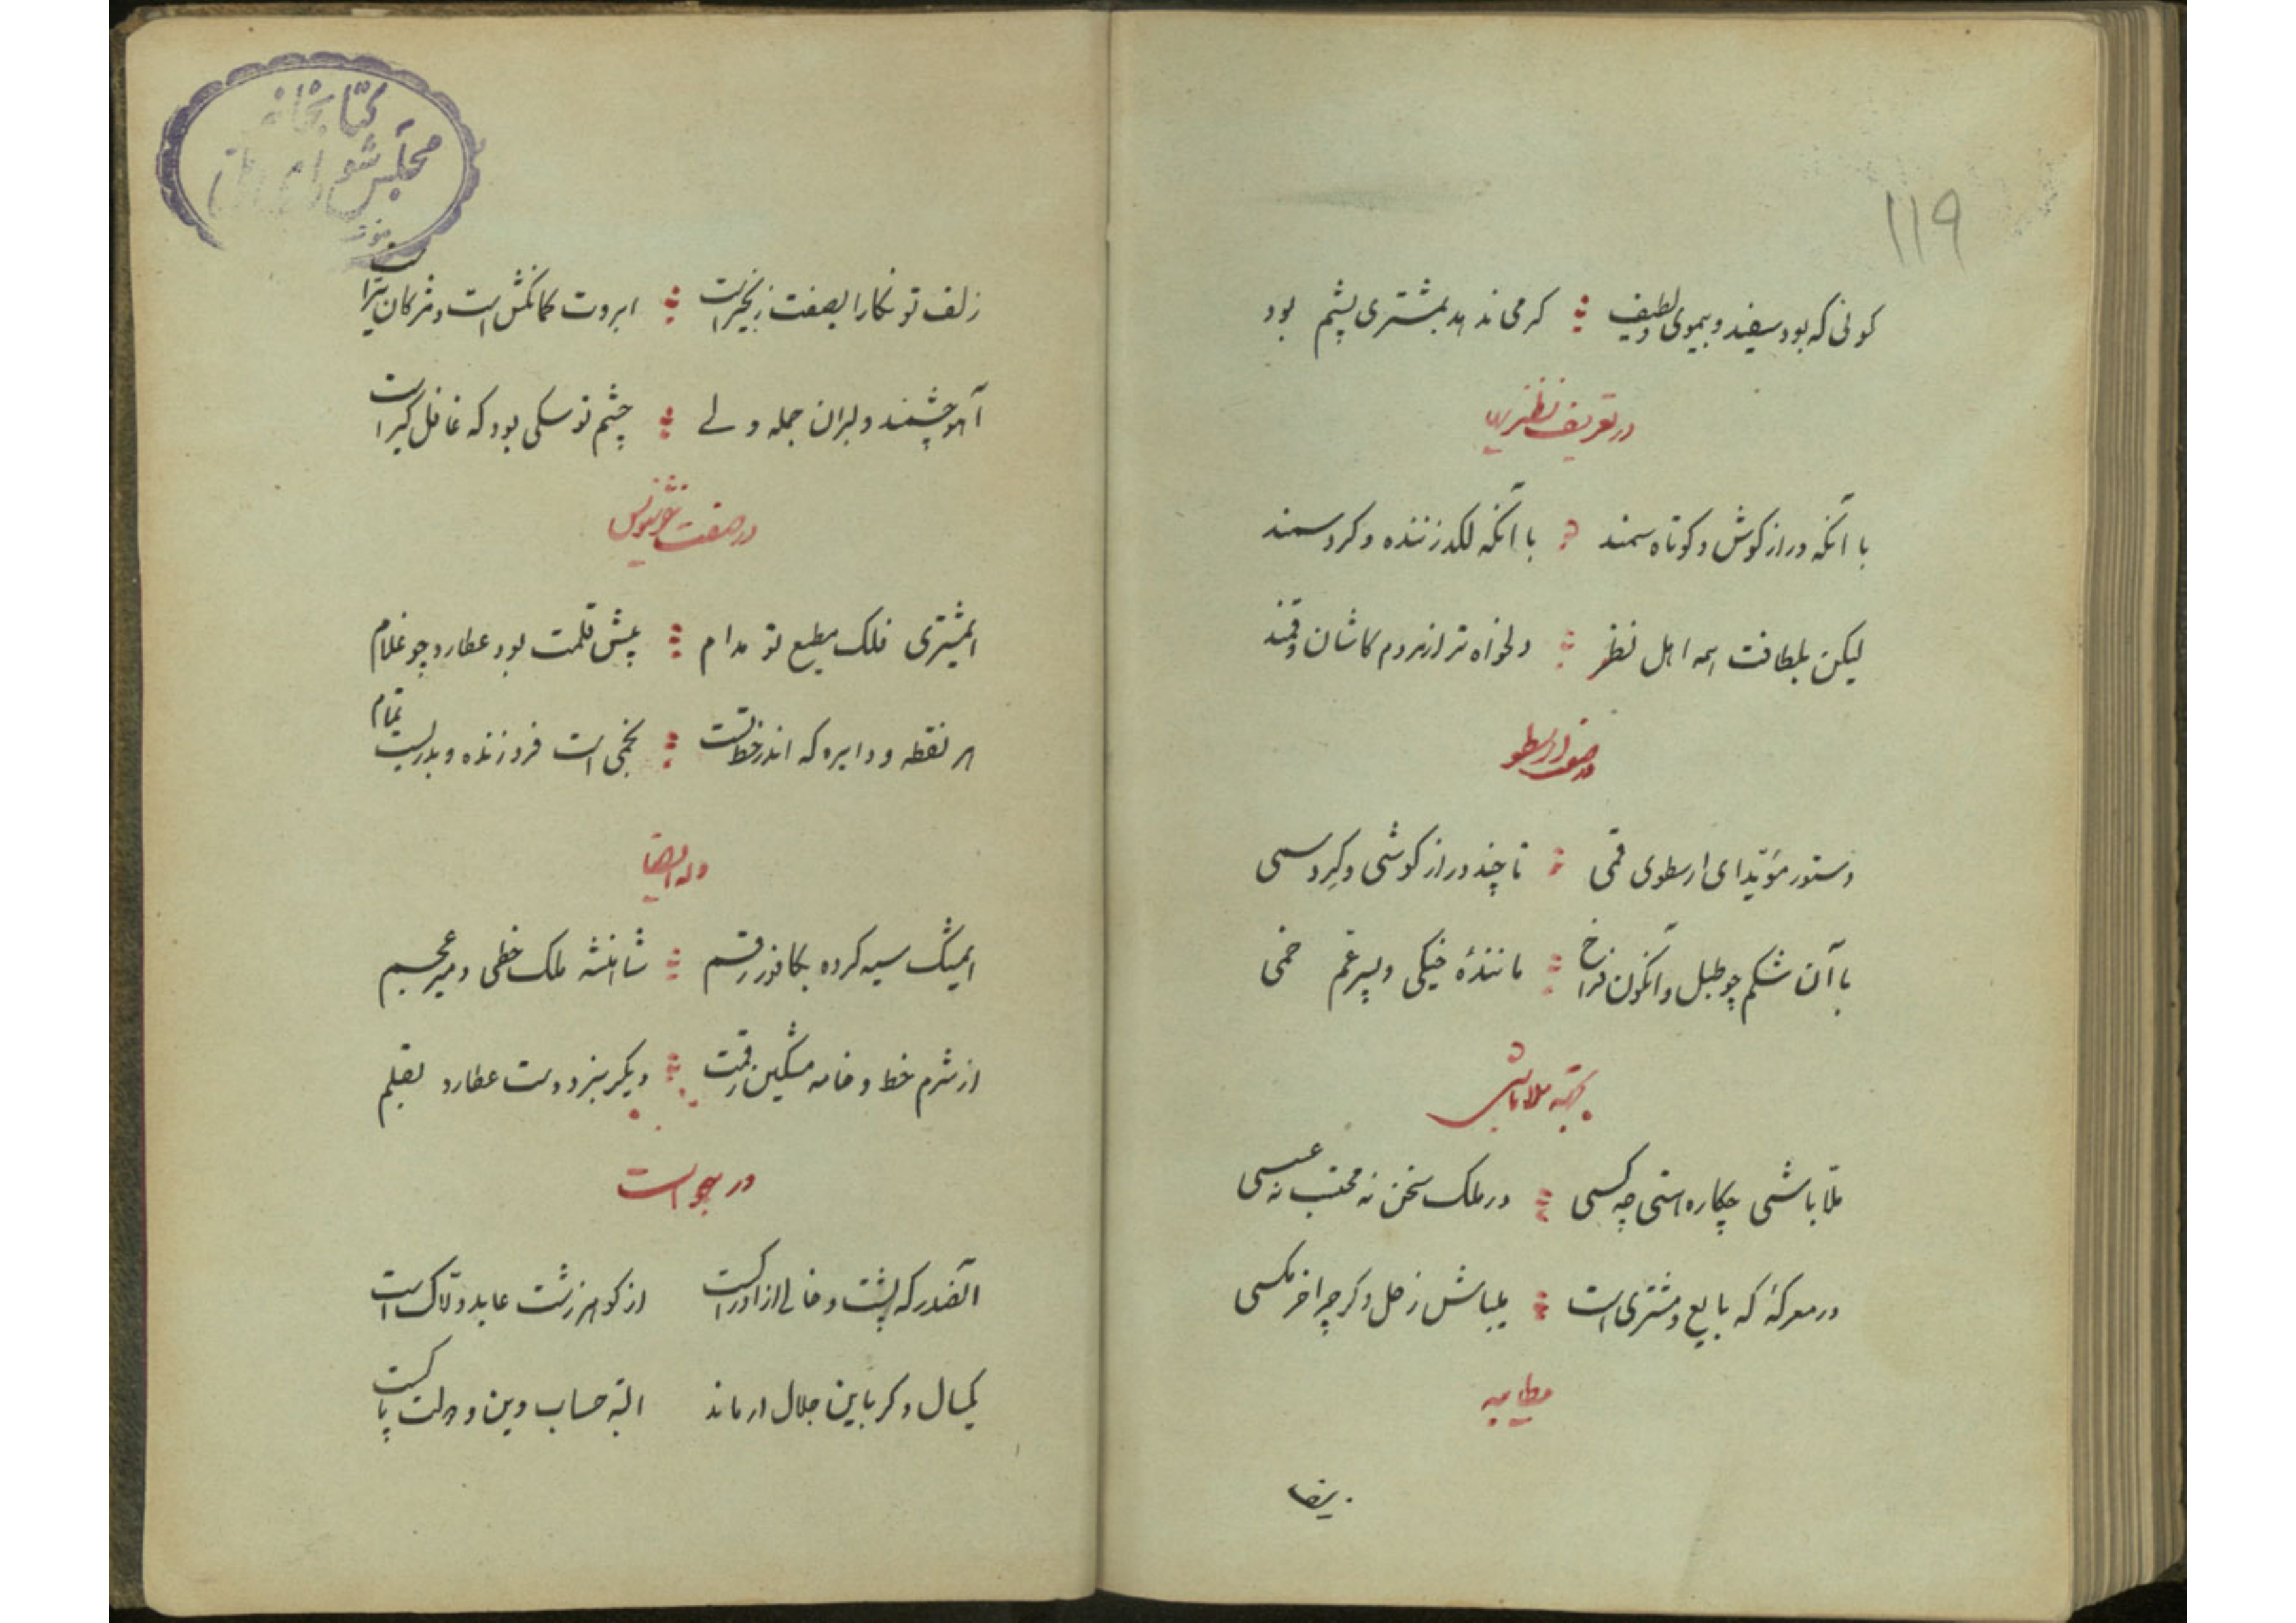 ۱۱۹
کونی که بود سفید و بیموی و لطیف کر می ندهد بمشتری پشم بود
در تعریف
با آنکه دراز کوش و کوتاه سمند با آنکه لکد زننده و کرد سمند
لیکن بلطافت همه اهل نظر دلخواه تر از مردم کاشان و قمند
در صفت ارسطو
دستور مؤیّد ای ارسطوی قمی تا چند دراز کوشی و کرد سمی
با آن شکم چو طبل و آن کون فراخ ماننده خیکی و پر غم خمی
ملا باشی
ملّا باشی چکاره استی چه کسی در ملک سخن نه محتسب نه عسسی
در معرکهٔ که بایع و مشتری است یلباش زحل و کر چرا خر مکسی
مطایبه
کتابخانه
مجلس شورای
زلف تو نکارا بصفت زنجیر است ابروت کمانکش است و مژکان تیر است
آهو چشمند دلبران جمله ولے چشم تو سکی بود که غافل کیر است
در صفت
ایمشتری فلک مطیع تو مدام پیش قلمت بود عطارد چو غلام
هر نقطه و دایره که اندر خط تست نجمی است فروزنده و بدریست تمام
وله ایضا
ایمشک سیه کرده بکافور رقم شاهنشه ملک خطی و میر عجم
از شرم خط و خامه مشکین رقمت دیکر نبرد دست عطارد بقلم
در هجو است
آنقدر که پشت و خالے از ادراکست از کوهر زشت عابد و تلاک است
یکسال دکر باین جلال ار ماند البته حساب دین و دولت پاکست